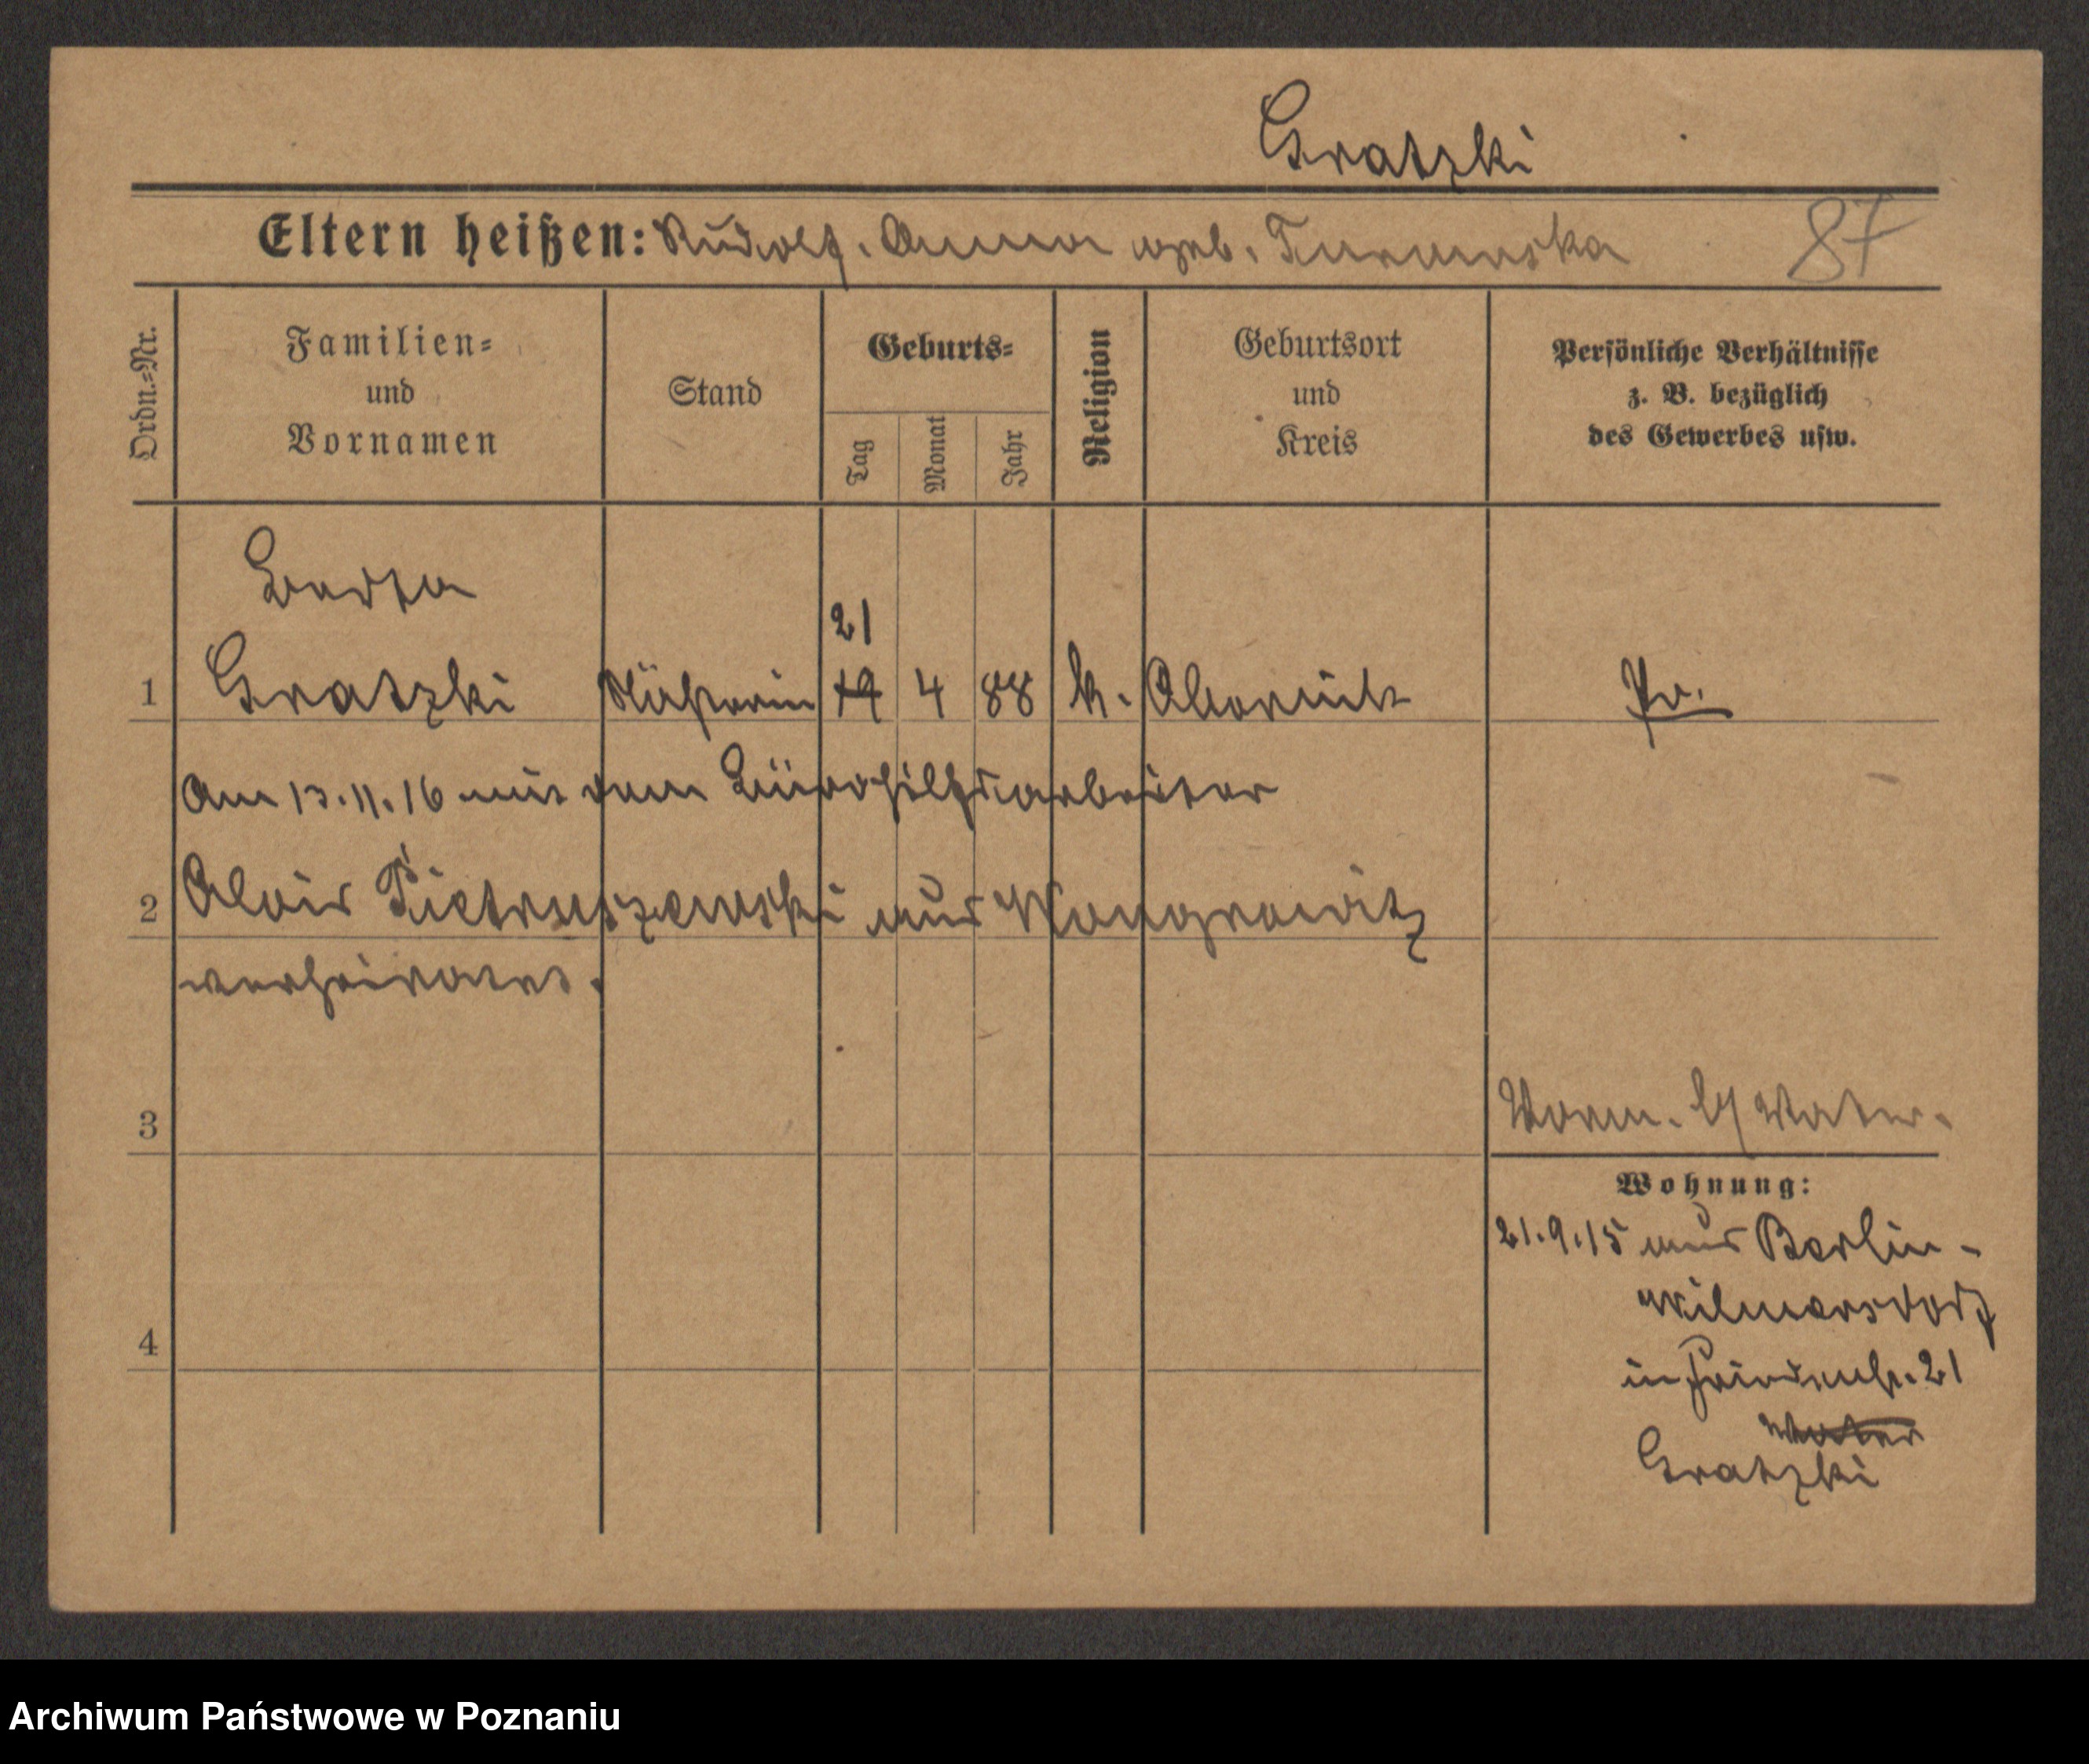 Gratzki
Eltern heißen: Rudolf. Anna geb. Turowska 87
Ordn.=Nr.
Familien=
und
Vornamen
Stand
Geburts=
Tag
Monat
Jahr
Religion
Geburtsort
und
Kreis
Persönliche Verhältnisse
z. B. bezüglich
des Gewerbes usw.
Berta
21
1 Gratzki Näherin 19 4 88 k. Pr.
Am 13.11.16 mit dem Bürohilfsarbeiter
2 Alois Pietruszewski aus Wongrowitz
verheiratet.
3 Vorm. Vater.
Wohnung:
21.9.15 aus Berlin-
Wilmersdorf
4 in Friedenstr. 21
Vater
Gratzki
Archiwum Państwowe w Poznaniu